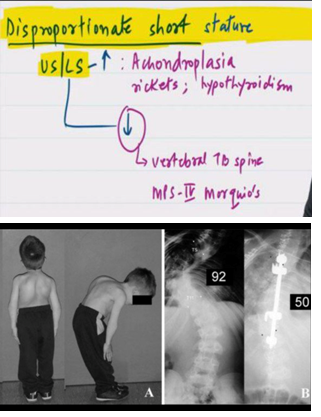 Disproportionate short stature
US/LS - ↑ : Achondroplasia
rickets; hypothyroidism
↓
→ vertebral TB spine
MPS-IV Morquio's
92
50
A
B